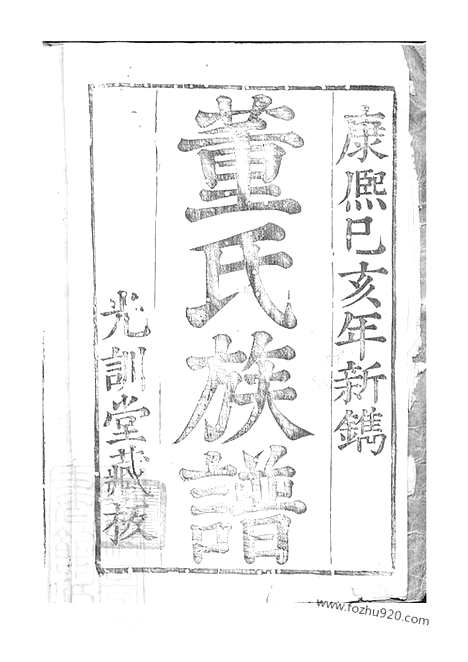 康熙己亥年新鐫
董氏族譜
光訓堂藏板
www.fozhu920.com